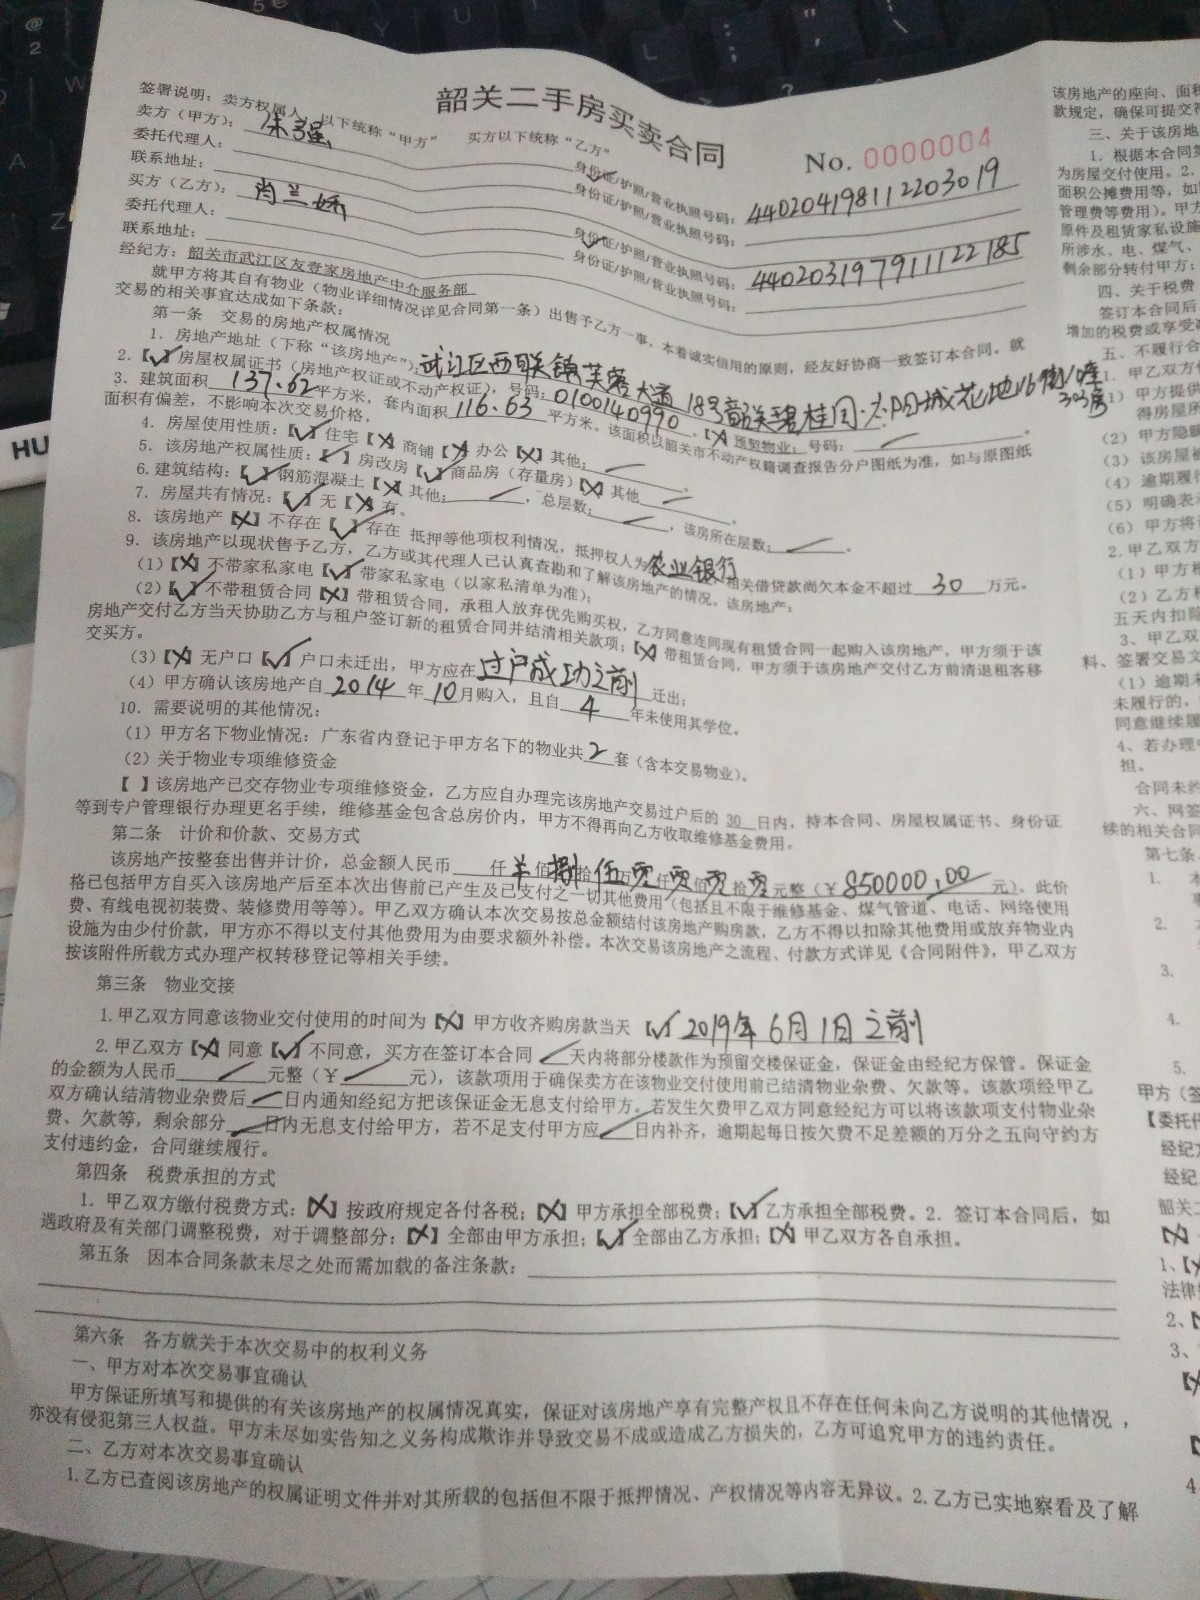 韶关二手房买卖合同
No. 0000004
签署说明：卖方权属人，以下统称“甲方” 买方以下统称“乙方”
卖方（甲方）：朱强 身份证/护照/营业执照号码：440204198112203019
委托代理人： 身份证/护照/营业执照号码：
联系地址：
买方（乙方）：肖兰娇 身份证/护照/营业执照号码：440203197911122185
委托代理人： 身份证/护照/营业执照号码：
联系地址：
经纪方：韶关市武江区友壹家房地产中介服务部
就甲方将其自有物业（物业详细情况详见合同第一条）出售予乙方一事，本着诚实信用的原则，经友好协商一致签订本合同。就
交易的相关事宜达成如下条款：
第一条 交易的房地产权属情况
1. 房地产地址（下称“该房地产”）：武江区西联镇芙蓉大道18号韶关碧桂园·太阳城花地16街10座303房
2.【√】房屋权属证书（房地产权证或不动产权证），号码：0100140990。【X】预契物业：号码：
3. 建筑面积 137.62 平方米，套内面积 116.63 平方米。该面积以韶关市不动产权籍调查报告分户图纸为准，如与原图纸
面积有偏差，不影响本次交易价格，
4. 房屋使用性质：【√】住宅【X】商铺【X】办公【X】其他：
5. 该房地产权属性质：【√】房改房【√】商品房（存量房）【X】其他
6.建筑结构：【√】钢筋混凝土【X】其他： ，总层数： ，该房所在层数： 。
7. 房屋共有情况：【√】无【X】有。
8. 该房地产【X】不存在【√】存在 抵押等他项权利情况，抵押权人为农业银行 相关借贷款尚欠本金不超过 30 万元。
9. 该房地产以现状售予乙方，乙方或其代理人已认真查勘和了解该房地产的情况。该房地产：
（1）【X】不带家私家电【√】带家私家电（以家私清单为准）。
（2）【√】不带租赁合同【X】带租赁合同，承租人放弃优先购买权，乙方同意连同现有租赁合同一起购入该房地产，甲方须于该
房地产交付乙方当天协助乙方与租户签订新的租赁合同并结清相关款项；【X】带租赁合同，甲方须于该房地产交付乙方前清退租客移
交买方。
（3）【X】无户口【√】户口未迁出，甲方应在 过户成功之前 迁出；
（4）甲方确认该房地产自 2014 年 10 月购入，且自 4 年未使用其学位。
10. 需要说明的其他情况：
（1）甲方名下物业情况：广东省内登记于甲方名下的物业共 2 套（含本交易物业）。
（2）关于物业专项维修资金
【 】该房地产已交存物业专项维修资金，乙方应自办理完该房地产交易过户后的 30 日内，持本合同、房屋权属证书、身份证
等到专户管理银行办理更名手续，维修基金包含总房价内，甲方不得再向乙方收取维修基金费用。
第二条 计价和价款、交易方式
该房地产按整套出售并计价，总金额人民币 仟 佰 捌 拾 伍 万 零 仟 零 佰 零 拾 零 元整（￥850000.00 元）。此价
格已包括甲方自买入该房地产后至本次出售前已产生及已支付之一切其他费用（包括且不限于维修基金、煤气管道、电话、网络使用
费、有线电视初装费、装修费用等等）。甲乙双方确认本次交易按总金额结付该房地产购房款，乙方不得以扣除其他费用或放弃物业内
设施为由少付价款，甲方亦不得以支付其他费用为由要求额外补偿。本次交易该房地产之流程、付款方式详见《合同附件》，甲乙双方
按该附件所载方式办理产权转移登记等相关手续。
第三条 物业交接
1.甲乙双方同意该物业交付使用的时间为【X】甲方收齐购房款当天 【√】2019年6月1日之前
2.甲乙双方【X】同意【√】不同意，买方在签订本合同 天内将部分楼款作为预留交楼保证金，保证金由经纪方保管。保证金
的金额为人民币 元整（￥ 元），该款项用于确保卖方在该物业交付使用前已结清物业杂费、欠款等。该款项经甲乙
双方确认结清物业杂费后 日内通知经纪方把该保证金无息支付给甲方。若发生欠费甲乙双方同意经纪方可以将该款项支付物业杂
费、欠款等，剩余部分 日内无息支付给甲方，若不足支付甲方应 日内补齐，逾期起每日按欠费不足差额的万分之五向守约方
支付违约金，合同继续履行。
第四条 税费承担的方式
1. 甲乙双方缴付税费方式：【X】按政府规定各付各税；【X】甲方承担全部税费；【√】乙方承担全部税费。2. 签订本合同后，如
遇政府及有关部门调整税费，对于调整部分；【X】全部由甲方承担；【√】全部由乙方承担；【X】甲乙双方各自承担。
第五条 因本合同条款未尽之处而需加载的备注条款：
第六条 各方就关于本次交易中的权利义务
一、甲方对本次交易事宜确认
甲方保证所填写和提供的有关该房地产的权属情况真实，保证对该房地产享有完整产权且不存在任何未向乙方说明的其他情况，
亦没有侵犯第三人权益。甲方未尽如实告知之义务构成欺诈并导致交易不成或造成乙方损失的，乙方可追究甲方的违约责任。
二、乙方对本次交易事宜确认
1.乙方已查阅该房地产的权属证明文件并对其所载的包括但不限于抵押情况、产权情况等内容无异议。2.乙方已实地察看及了解
该房地产的座向、面积
款规定，确保可提交符
三、关于该房地
1. 根据本合同第
为房屋交付使用。2.
面积公摊费用等，如
管理费等费用）。甲方
原件及租赁家私设施
所涉水、电、煤气、
剩余部分转付甲方；
四、关于税费
签订本合同后
增加的税费或享受
五、不履行合
1. 甲乙双方
（1）甲方提供
得房屋所
（2）甲方隐瞒
（3）该房屋被
（4）逾期履行
（5）明确表示
（6）甲方将
2.甲乙双方
（1）甲方
（2）乙方
五天内扣除
3、甲乙双
料、签署交易文
（1）逾期未
未履行的，
同意继续履
4、若办理
担。
合同未约
六、网签
续的相关合同
第七条
1.
2.
3.
4.
5.
甲方（签
【委托代
经纪方
经纪
韶关二
【X】
1、【X
法律
2、【
3、
【X
4